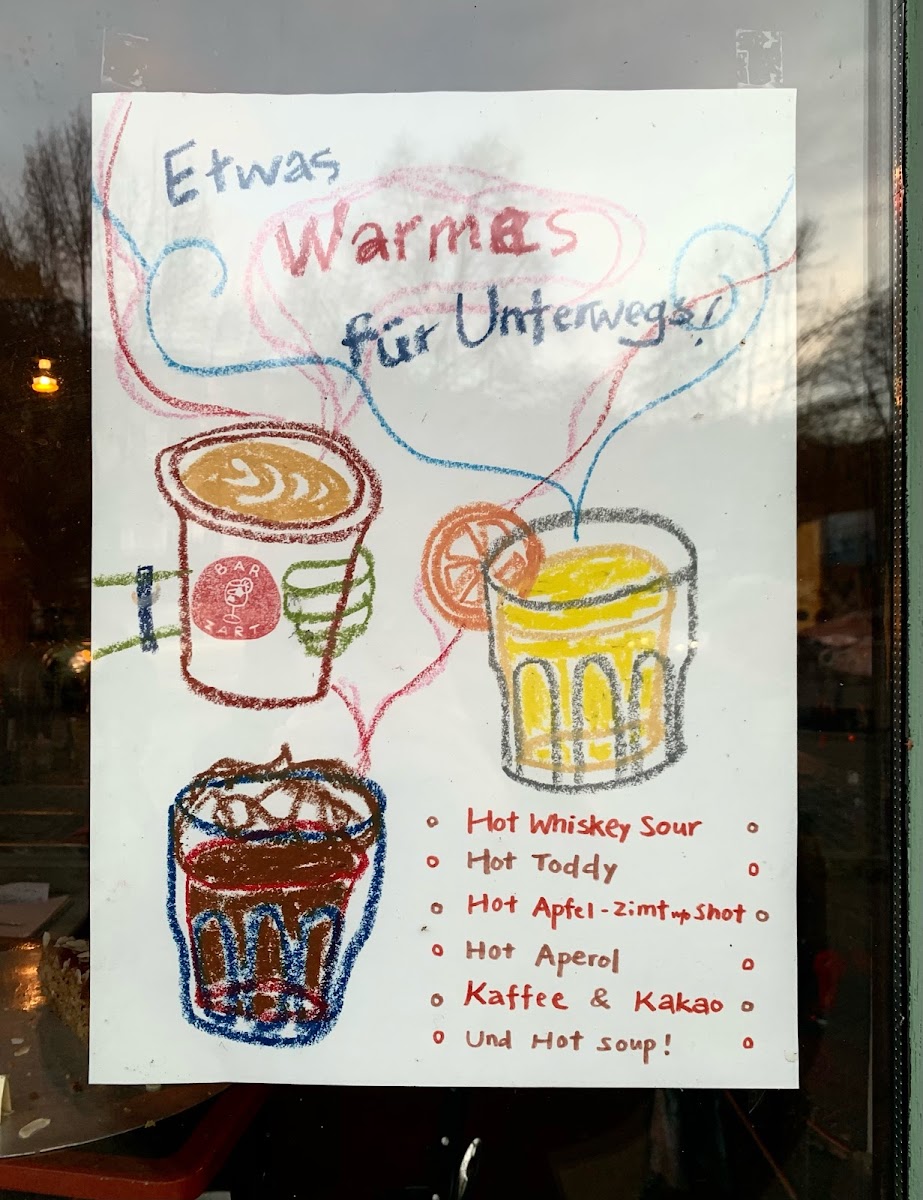 Etwas
Warmes
für Unterwegs!
BAR
ZART
Hot Whiskey Sour
Hot Toddy
Hot Apfel-Zimt Shot
Hot Aperol
Kaffee & Kakao
Und Hot soup!